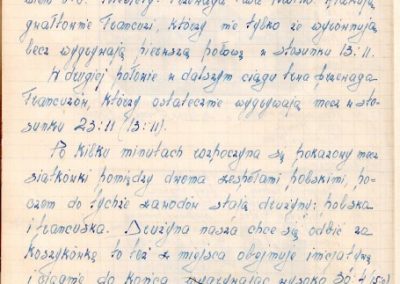 gwałtownie Francuzi, którzy nie tylko że wyrównują
lecz wygrywają pierwszą połowę w stosunku 13:11.
W drugiej połowie w dalszym ciągu trwa przewaga
Francuzów, którzy ostatecznie wygrywają mecz w sto-
sunku 23:11 (13:11).
Po kilku minutach rozpoczyna się pokazowy mecz
siatkówki pomiędzy dwoma zespołami polskimi, po-
czem do tychże zawodów stają drużyny: polska
i francuska. Drużyna nasza chce się odbić za
koszykówkę to też z miejsca obejmuje inicjatywę
i ciągnie do końca wygrywając wysoko 30:4